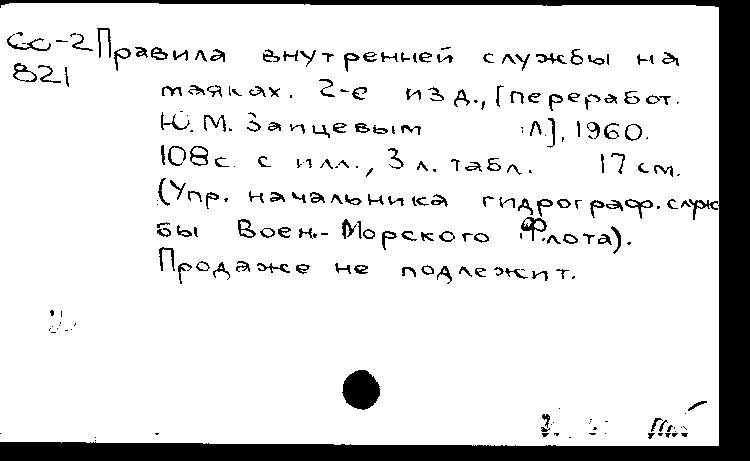 СС-2 Правила внутренней службы на
821 маяках. 2-е изд., [переработ.
Ю.М. Зайцевым Л], 1960.
108 с. с илл., 3 л. табл. 17 см.
(Упр. начальника гидрограф. служ
бы Воен.-Морского Флота).
Продаже не подлежит.